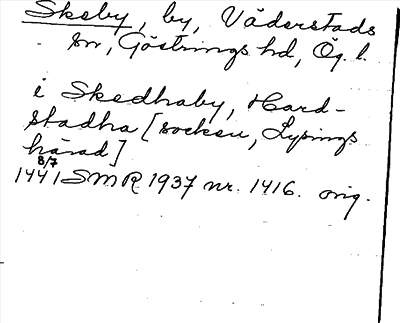 Skeby, by, Väderstads
sn, Göstrings hd, Ög. l.
i Skedhaby, Hard-
stadha [socken, Lysings
härad]
8/7
1441 SMR 1937 nr. 1416. orig.